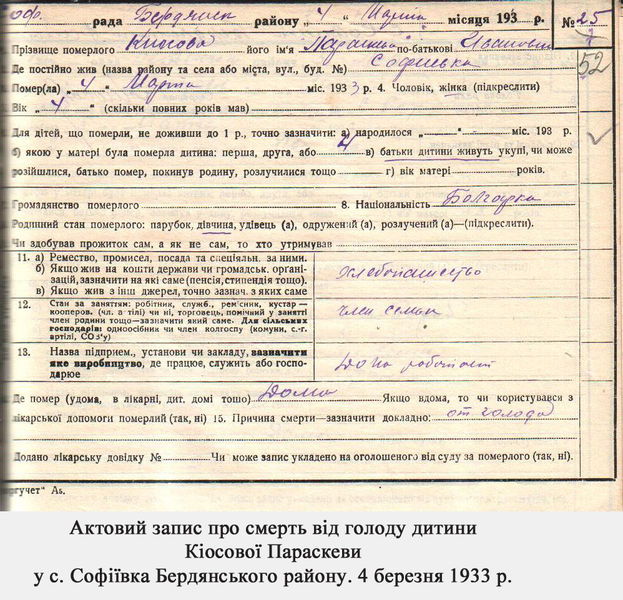 оф. рада Бердянськ району „ 4 “ Марта місяця 193 р. № 25
Прізвище померлого Кіосова його ім'я Параскев по-батькові Ивановн
52
Де постійно жив (назва району та села або міста, вул., буд. №) Софиевка
Помер(ла) „ 4 “ Марта міс. 193 3 р. 4. Чоловік, жінка (підкреслити)
Вік „ 4 “ (скільки повних років мав)
Для дітей, що померли, не доживши до 1 р., точно зазначити: а) народилося „ “ міс. 193 р.
б) якою у матері була померла дитина: перша, друга, або 4 в) батьки дитини живуть укупі, чи може
розійшлися, батько помер, покинув родину, розлучилися тощо г) вік матері років.
Громадянство померлого 8. Національність Болгарка
Родинний стан померлого: парубок, дівчина, удівець (а), одружений (а), розлучений (а)—(підкреслити).
Чи здобував прожиток сам, а як не сам, то хто утримував
11. а) Ремество, промисел, посада та спеціяльн. за ними.
б) Якщо жив на кошти держави чи громадськ. органі-
зацій, зазначити на які саме (пенсія, стипендія тощо).
в) Якщо жив з інш джерел, точно зазнач. з яких саме
хлебопашество
12. Стан за заняттям: робітник, служб., рем'сник, кустар—
кооперов. (чл. а тілі) чи ні, торговець, помічний у занятті
член родини тощо—зазначити який саме. Для сільських
господарів: одноосібник чи член колгоспу (комуни, с.-г.
артілі, СОЗ'у)
член семьи
13. Назва підприєм., установи чи закладу, зазначити
яке виробництво, де працює, служить або госпо-
дарює
Де помер (удома, в лікарні, дит. домі тошо) Дома Якщо вдома, то чи користувався з
лікарської допомоги померлий (так, ні) 15. Причина смерти—зазначити докладно: от голода
Додано лікарську довідку № Чи може запис укладено на оголошеного від суду за померлого (так, ні).
оргучет" Ах.
Актовий запис про смерть від голоду дитини
Кіосової Параскеви
у с. Софіївка Бердянського району. 4 березня 1933 р.